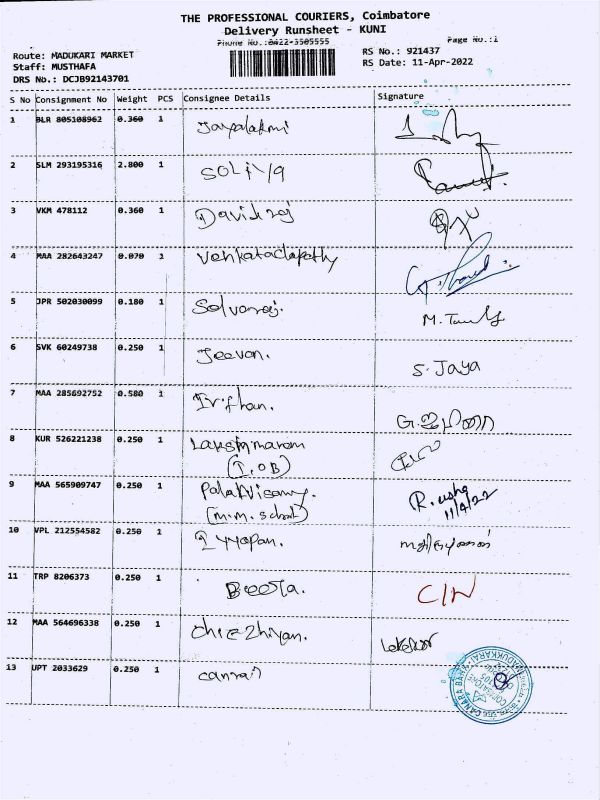 THE PROFESSIONAL COURIERS, Coimbatore
Delivery Runsheet - KUNI
Phone No.:0422-3505555
Page No.:1
Route: MADUKARI MARKET
RS No.: 921437
Staff: MUSTHAFA
RS Date: 11-Apr-2022
DRS No.: DCJB92143701
S No Consignment No Weight PCS Consignee Details Signature
1 BLR 805108962 0.360 1
2 SLM 293195316 2.800 1
3 VKM 478112 0.360 1 Davidraj
4 MAA 282643247 0.070 1
5 JPR 502030099 0.180 1 Selvaraj.
6 SVK 60249738 0.250 1 Jeevan. S. Jaya
7 MAA 285692752 0.580 1 Irfhan.
8 KUR 526221238 0.250 1
(I.OB)
9 MAA 565909747 0.250 1 R. usha
(M.M. School) 11/4/22
10 VPL 212554582 0.250 1 Iyyapan.
11 TRP 8206373 0.250 1
12 MAA 564696338 0.250 1
13 UPT 2033629 0.250 1
CANARA BANK
MADUKKARAI
COIMBATORE